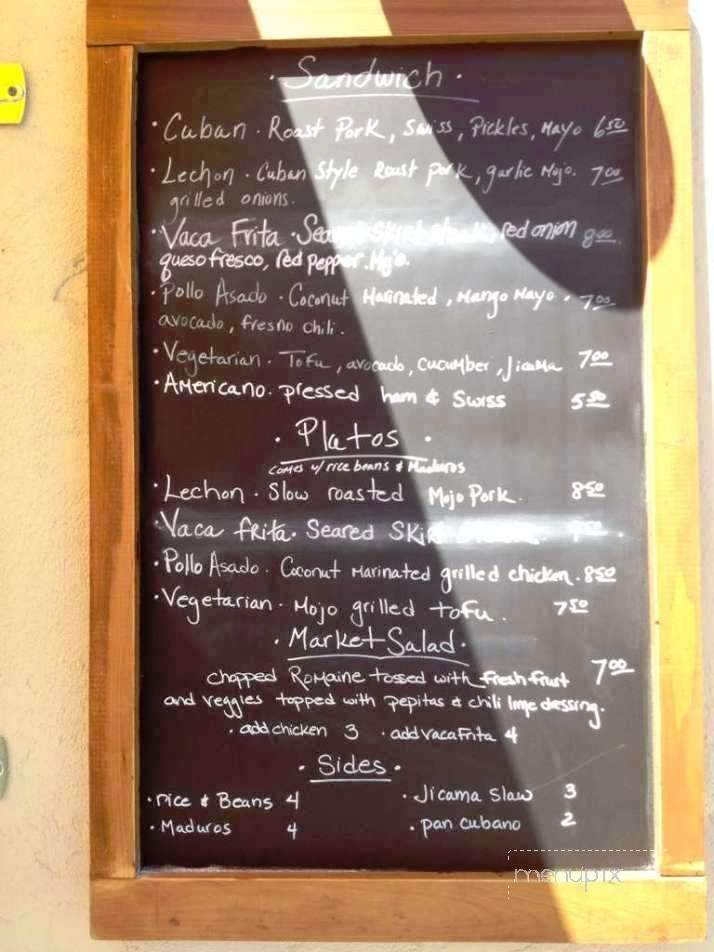 · Sandwich ·
· Cuban · Roast Pork, Swiss, Pickles, Mayo 6.50
· Lechon · Cuban Style Roast pork, garlic Mojo. 7.00
grilled onions.
· Vaca Frita · Seared Skirt steak, red onion 8.00
queso fresco, red pepper. Mojo.
· Pollo Asado · Coconut Marinated, Mango Mayo · 7.00
avocado, fresno chili.
· Vegetarian · Tofu, avocado, cucumber, Jicama 7.00
· Americano. pressed ham & Swiss 5.50
· Platos ·
comes w/ rice beans & Maduros
· Lechon · Slow roasted Mojo Pork. 8.50
· Vaca frita · Seared Skirt
· Pollo Asado · Coconut Marinated grilled chicken · 8.50
· Vegetarian · Mojo grilled tofu. 7.50
· Market Salad ·
chopped Romaine tossed with fresh fruit 7.00
and veggies topped with pepitas & chili lime dressing.
· add chicken 3 · add vaca Frita 4
· Sides ·
· rice & Beans 4 · Jicama Slaw 3
· Maduros 4 · pan cubano 2
menupix